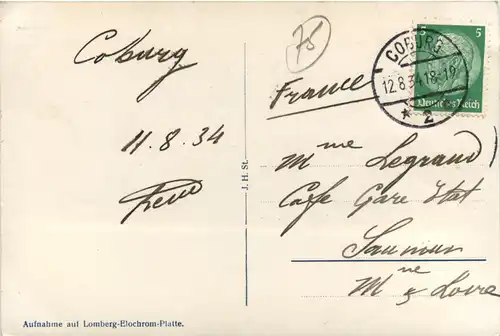 Coburg
11.8.34
75
France
COBURG
12.8.34.18-19
* 2
5 5
Deutsches Reich
Mme Legrand
Cafe Gare Etat
Saumur
Mne & Loire
J. H. St.
Aufnahme auf Lomberg-Elochrom-Platte.